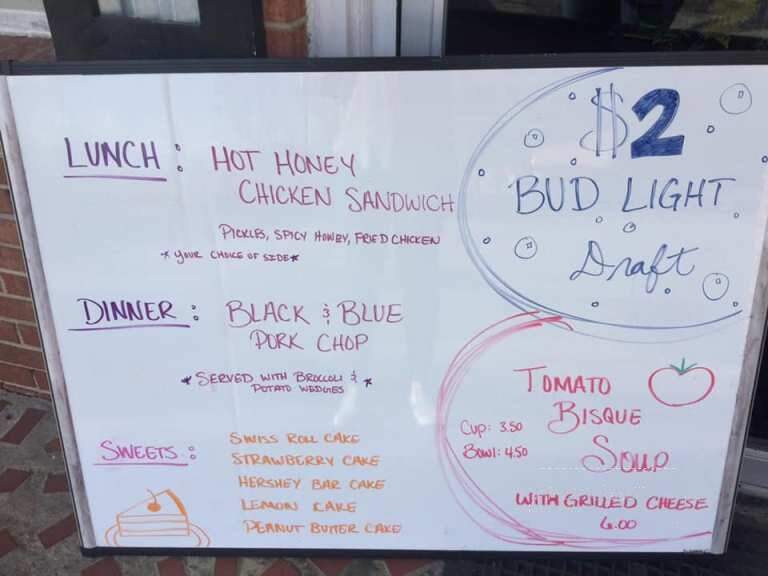 LUNCH: HOT HONEY
CHICKEN SANDWICH
PICKLES, SPICY HONEY, FRIED CHICKEN
*YOUR CHOICE OF SIDE*
DINNER: BLACK & BLUE
PORK CHOP
*SERVED WITH BROCCOLI &
POTATO WEDGES*
SWEETS: SWISS ROLL CAKE
STRAWBERRY CAKE
HERSHEY BAR CAKE
LEMON CAKE
PEANUT BUTTER CAKE
$2
BUD LIGHT
Draft
TOMATO
BISQUE
SOUP
CUP: 3.50
BOWL: 4.50
WITH GRILLED CHEESE
6.00